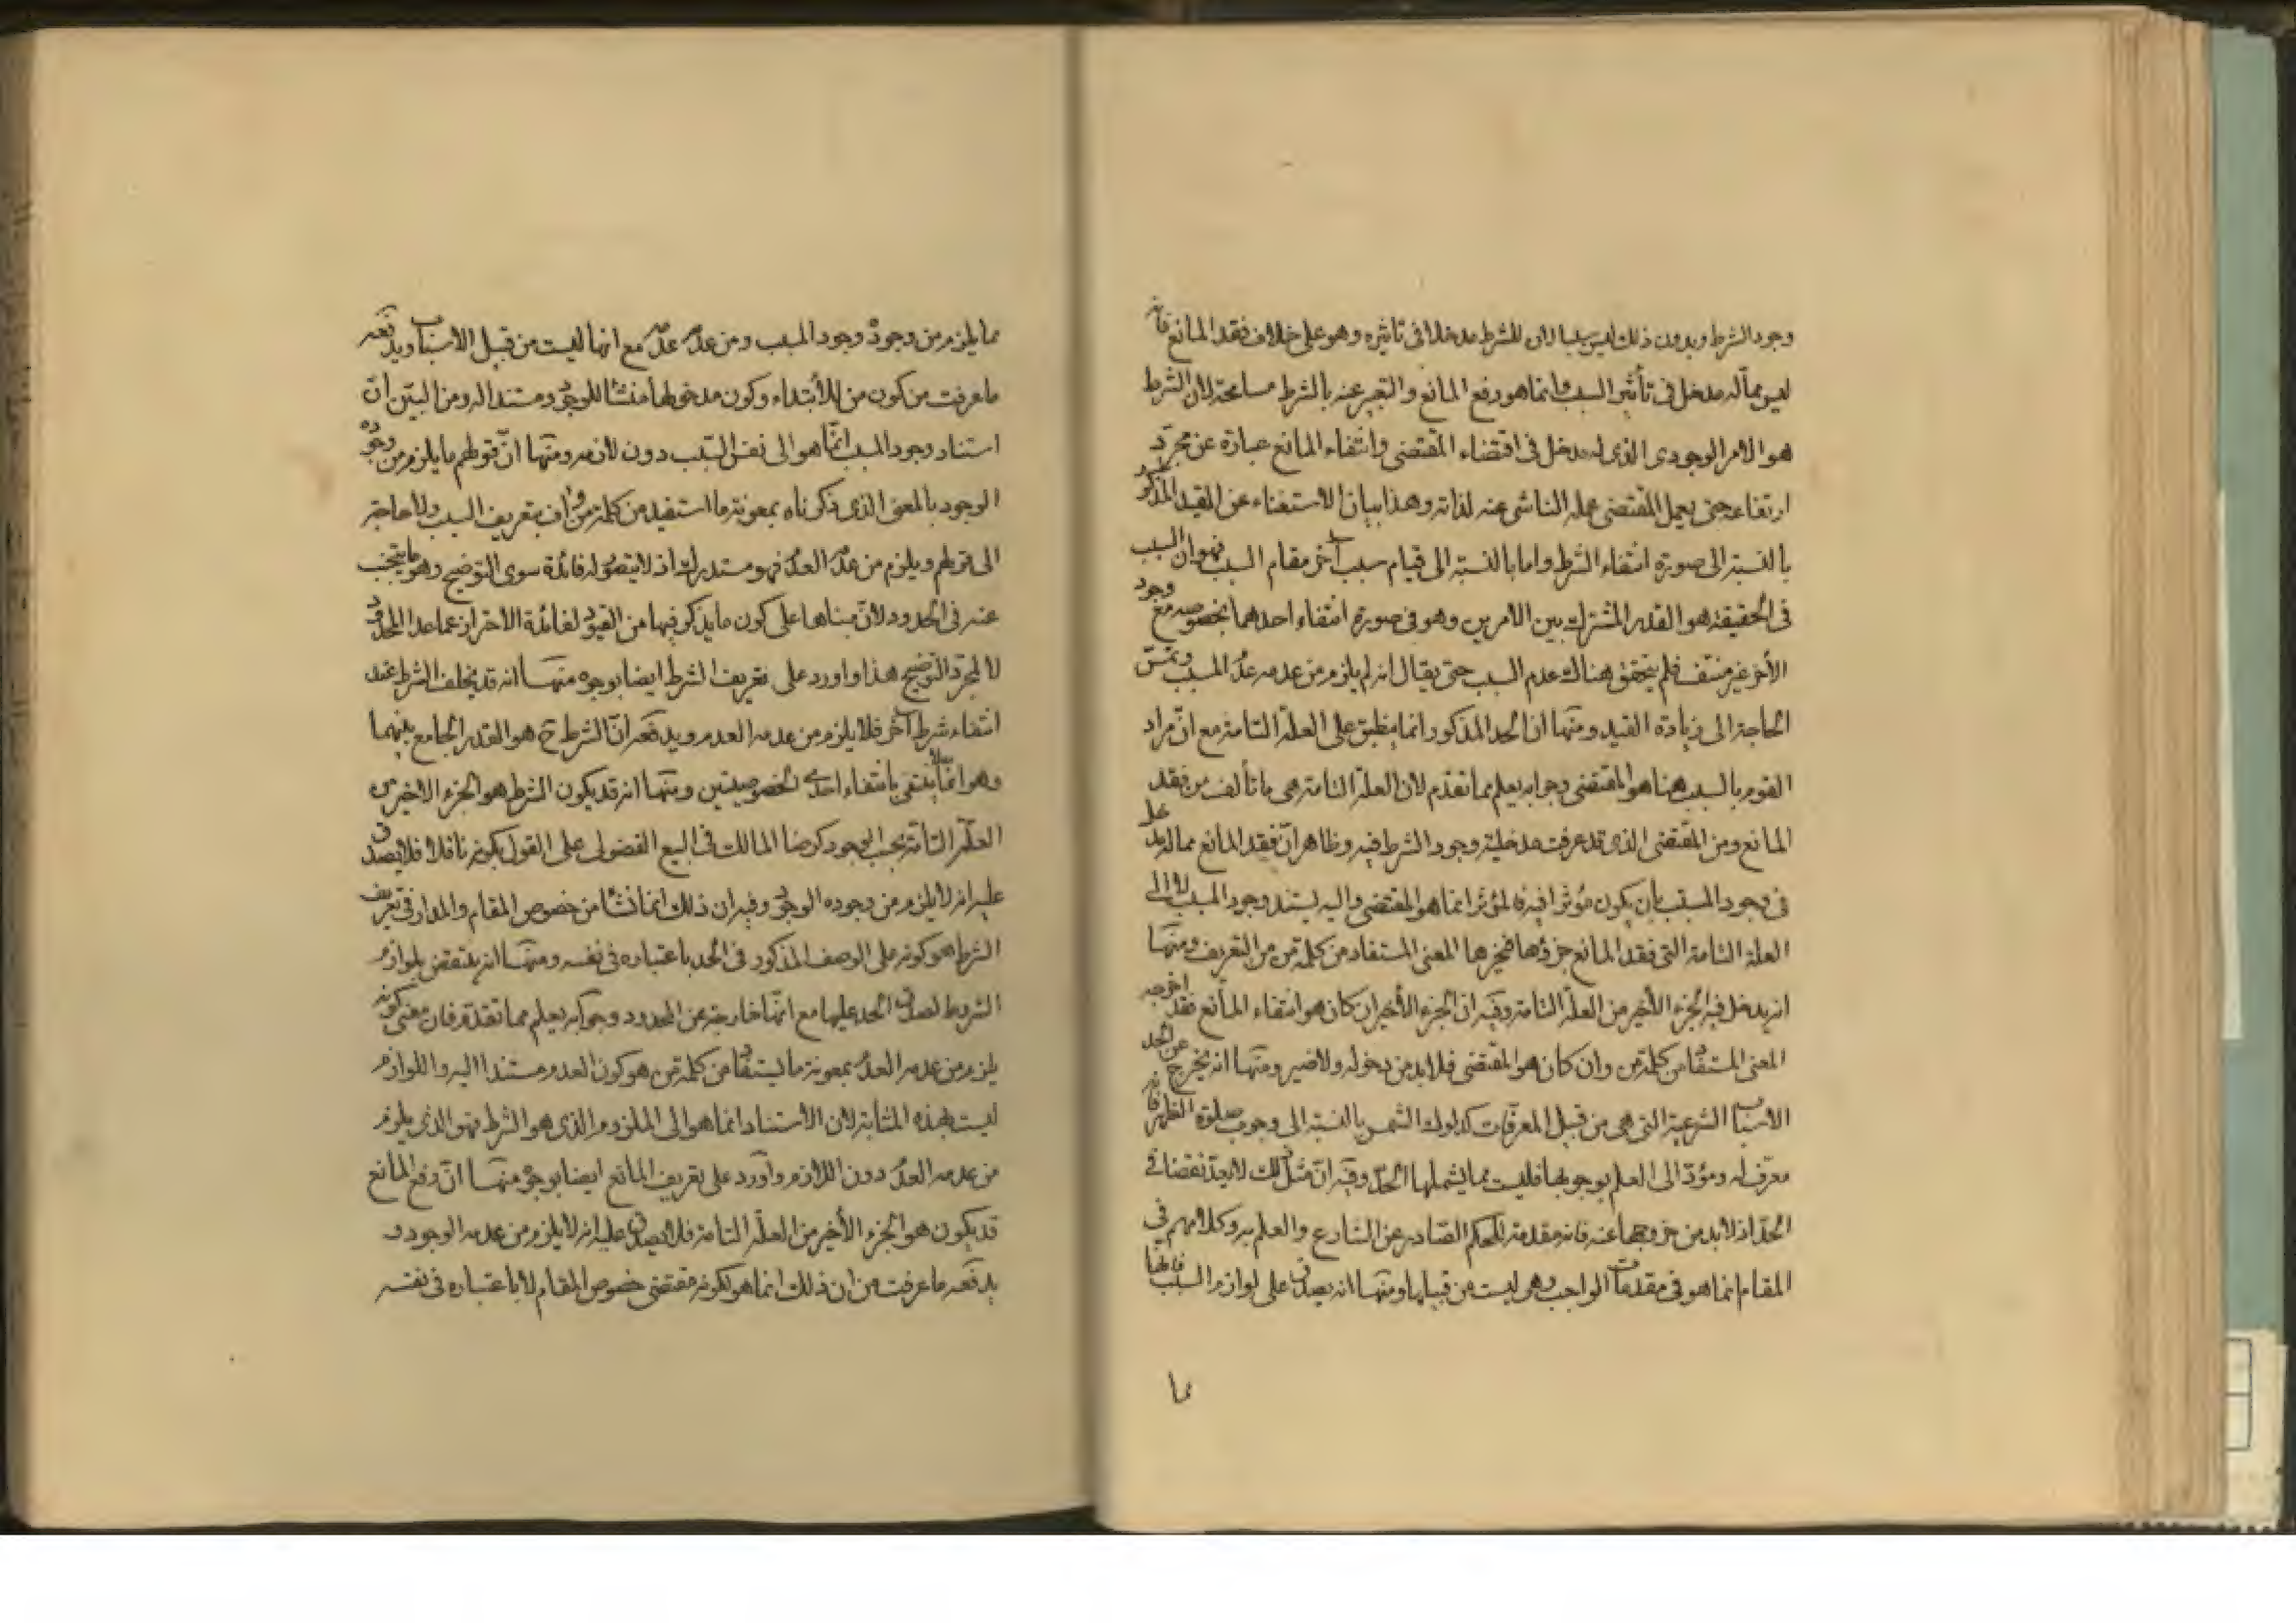 وجود الشرط وبدون ذلك ليس سببا لان للشرط مدخلا في تاثيره وهو على خلاف فقد المانع فانه
ليس مما له مدخل في تأثير السبب وانما هو رفع المانع والتعبير عنه بالشرط مسامحة لان الشرط
هو الامر الوجودى الذى له مدخل في اقتضاء المقتضى وانتفاء المانع عبارة عن مجرّد
ارتفاعه حتى يعمل المقتضى عمله الناشى عنه لذاته وهذا بيان الاستغناء عن القيد المذكور
بالنسبة الى صورة انتفاء الشرط واما بالنسبة الى قيام سبب آخر مقام السبب فهو ان السبب
فى الحقيقة هو القدر المشترك بين الامرين وهو فى صورة انتفاء احدهما بخصوصه مع وجود
الأخر غير منتف فلم يتحقق هناك عدم السبب حتى يقال انه لم يلزم من عدمه عدم المسبب وتمسّ
الحاجة الى زيادة القيد ومنها ان الحد المذكور انما ينطبق على العلة التامة مع انّ مراد
القوم بالسبب هنا هو المقتضى وجوابه يعلم مما تقدم لان العلة التامة هى ما تألف من فقد
المانع ومن المقتضى الذى قد عرفت مدخلية وجود الشرط فيه وظاهر انّ فقد المانع مما له مدخل
فى وجود المسبب بان يكون مؤثرا فيه فالمؤثر انما هو المقتضى واليه يستند وجود المسبب لا الى
العلة التامة التى فقد المانع جزؤها فيخرها المعنى المستفاد من كلمة من من التعريف ومنها
انه يدخل فيه الجزء الأخير من العلة التامة وفيه ان الجزء الأخير ان كان هو انتفاء المانع فقد اخرجه
المعنى المستفاد من كلمة من وان كان هو المقتضى فلا بد من دخوله ولا ضير ومنها انه يخرج عن الحد
الاسباب الشرعية التى هى من قبيل المعرفات كدلوك الشمس بالنسبة الى وجوب صلوة الظهر فانه
معرّف له ومؤدّ الى العلم بوجوبها فليست مما يشملها الحدّ وفيه انّ مثل ذلك لا يعدّ نقضا فى
الحدّ اذ لا بد من خروجها عنه فانه مقدمة للحكم الصادر عن الشارع والعلم به وكلامهم فى
المقام انما هو فى مقدمات الواجب وهى ليست من قبيلها ومنها انه يصدق على لوازم السبب فانها
مما
مما يلزم من وجوده وجود المسبب ومن عدمه عدمه مع انها ليست من قبيل الاسباب ويدفعه
ما عرفت من كون من للأبتداء وكون مدخولها منشأ للوجود ومستندا له ومن البيّن انّ
استناد وجود المسبب انّما هو الى نفس السّبب دون لازمه ومنها انّ قولهم ما يلزم من وجوده
الوجود بالمعنى الذى ذكرناه بمعونة ما استفيد من كلمة من واف بتعريف السبب ولا حاجة
الى قولهم ويلزم من عدمه العدم فهو مستدرك اذ لا يتصور له فائدة سوى التوضيح وهو ما يتجنب
عنه فى الحدود لانّ مبناها على كون ما يذكر فيها من القيود لفائدة الاحتراز عما عدا المحدود
لا لمجرّد التوضيح هذا واورد على تعريف الشرط ايضا بوجوه منها انه قد يخلف الشرط عند
انتفاءه شرط آخر فلا يلزم من عدمه العدم ويدفعه انّ الشرط ح هو القدر الجامع بينهما
وهو انما لا ينتفى بانتفاء احدى الخصوصيتين ومنها انه قد يكون الشرط هو الجزء الاخير من
العلّة التامّة بحسب الوجود كرضا المالك فى البيع الفضولى على القول بكونه ناقلا فلا يصدق
عليه انه لا يلزم من وجوده الوجود وفيه ان ذلك انما نشأ من خصوص المقام والمدار فى تعريف
الشرط هو كونه على الوصف المذكور فى الحد باعتباره فى نفسه ومنها انه ينتقض بلوازم
الشروط لصدق الحد عليها مع انّها خارجة عن المحدود وجوابه يعلم مما تقدّم فان معنى كونه
يلزم من عدمه العدم بمعونة ما يستفاد من كلمة من هو كون العدم مستندا اليه واللوازم
ليست بهذه المثابة لان الاستناد انما هو الى الملزوم الذى هو الشرط فهو الذى يلزم
من عدمه العدم دون اللازم وأورد على تعريف المانع ايضا بوجوه منها انّ رفع المانع
قد يكون هو الجزء الأخير من العلة التامة فلا يصدق عليه انه لا يلزم من عدمه الوجود و
يدفعه ما عرفت من ان ذلك انما هو لكونه مقتضى خصوص المقام لا باعتباره فى نفسه